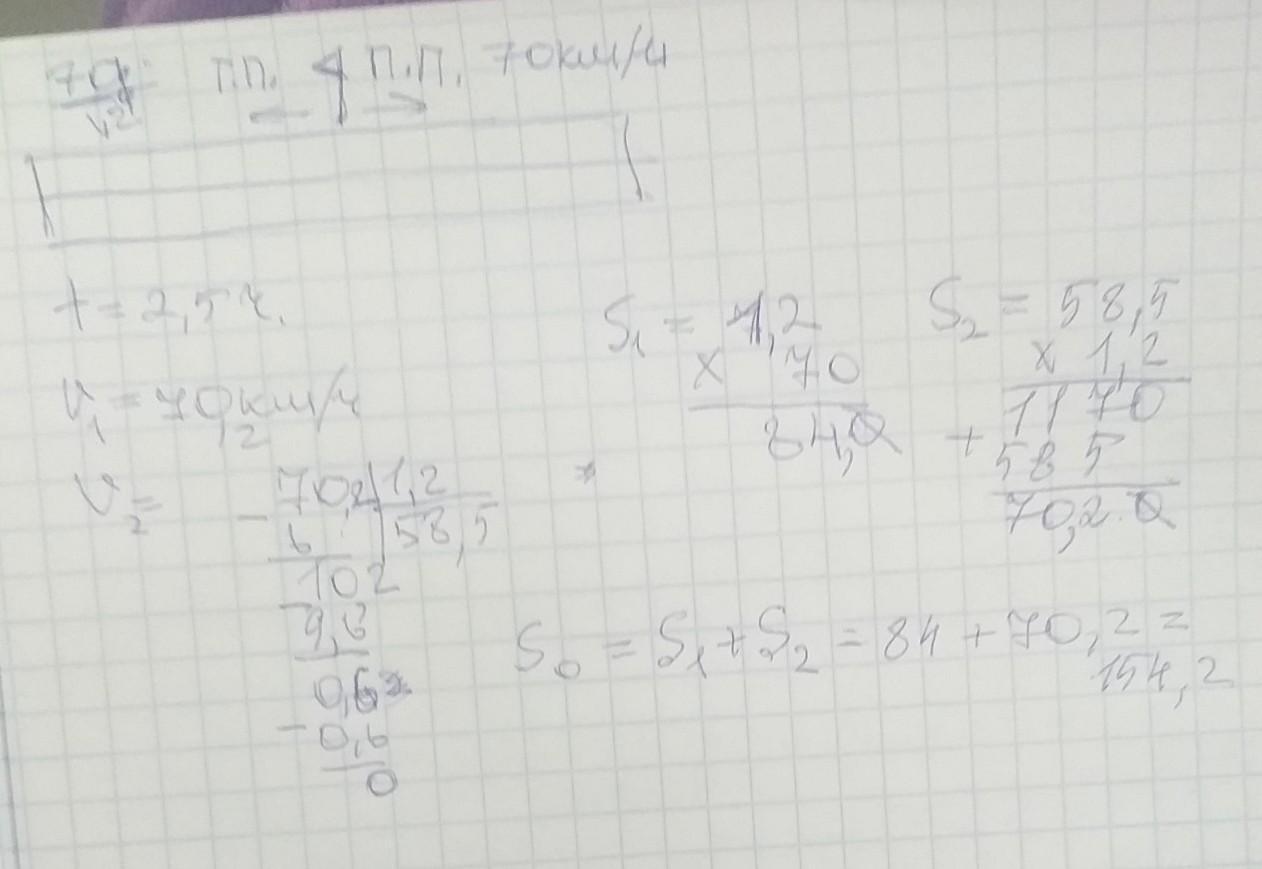 П.П. П.П. 70км/ч
t = 2,5 ч.
V₁ = 70км/ч
V₂ =
70,2 | 1,2
6 | 58,5
102
9,6
0,6
- 0,6
0
S₁ = 1,2
x 70
84,0
S₂ = 58,5
x 1,2
1170
+ 585
70,20
S₀ = S₁ + S₂ = 84 + 70,2 =
154,2